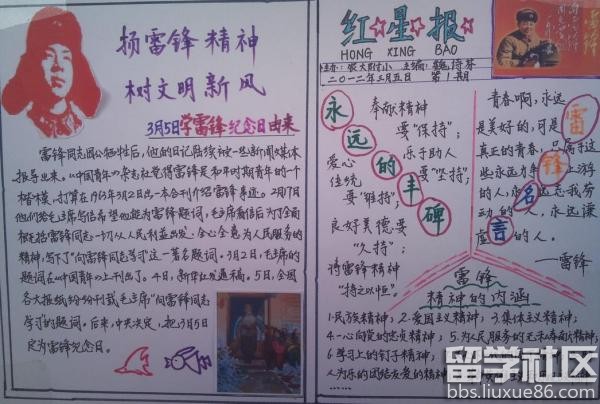 扬雷锋精神
树文明新风
3月5日学雷锋纪念日由来
雷锋同志因公牺牲后，他的日记陆续被一些新闻媒体
报导出来。《中国青年》杂志社觉得雷锋是和平时期青年的一个
榜样，打算在1963年3月2日出一本合刊介绍雷锋事迹。2月17日
他们写
毛主席
他能为雷锋题词，毛主席看信后为了全面
概括雷锋同志一切从人民利益出发，全心全意为人民服务的
精神，写下了“向雷锋同志学习”这一著名题词。3月2日，毛主席的
题词在《中国青年》上刊出了。4日，新华社发通稿。5日，全国
各大报纸纷纷刊载毛主席“向雷锋同志
学习”的题词。后来，中央决定，把3月5日
定为雷锋纪念日。
红☆星☆报
HONG XING BAO
主办：农大附小 主编：魏
二〇一二年三月五日 第1期
雷锋
永远的丰碑
奉献精神
要“保持”；
爱心 乐于助人
传统 要“坚持”；
要“维持”；
良好美德要
“久持”；
诗雷锋精神
“持之以恒”。
雷锋名言
青春啊，永远
是美好的，可是
真正的青春，只属于这
些永远力争上游
的人，永远忘我劳
动的人，永远谦
虚的人。
——雷锋
雷锋
精神的内涵
1·民族精神；2·爱国主义精神；3·集体主义精神；
4·一心向党的忠贞精神；5·为人民服务的无私奉献精神；
6·学习上的钉子精神；
人为乐的团结友爱的精神
……
留学社区
bbs.liuxue86.com